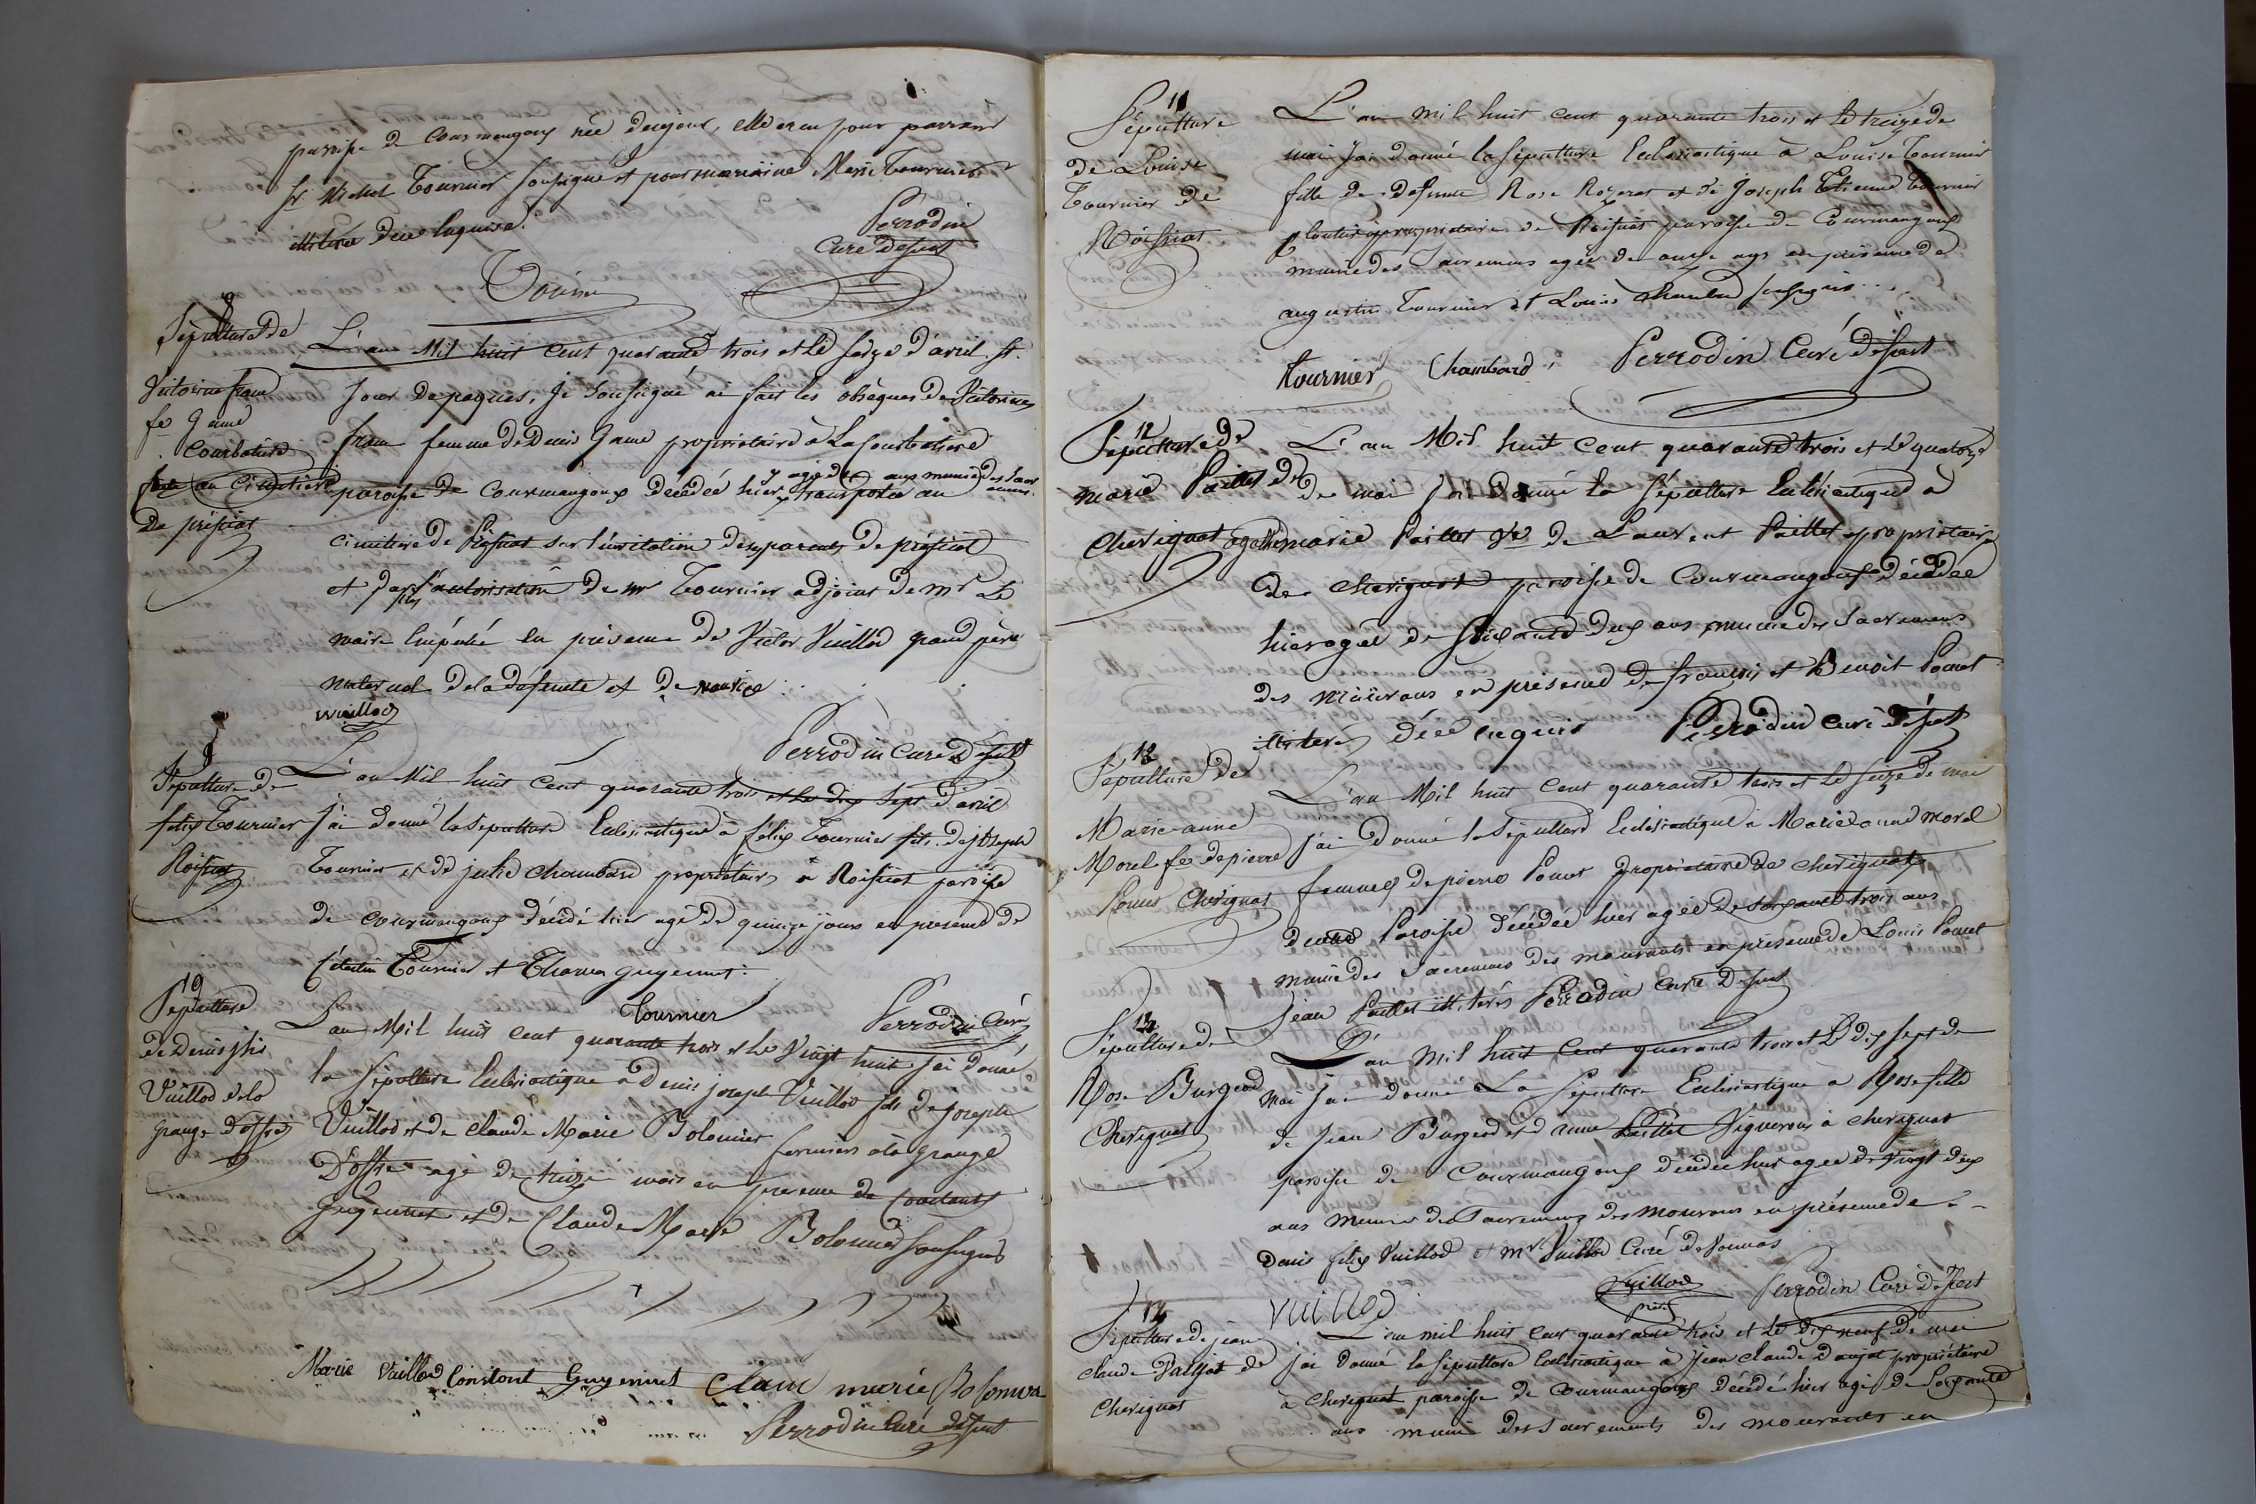 paroisse de Courmangoux née du jour, elle a eu pour parrain
Sr Michel Tournier soussigné et pour marraine Marie Tournier
illitérée de ce enquise.
Perrodin
Curé
Sépulture de
Victorine fram
fe Game
Courbatiere
au Cimetiere
de préssiat
L'an Mil huit cent quarante trois et le seize d'avril St.
jour de paques, je soussigné ai fait les obsèques de Victorine
fram femme de Denis Game propriétaire à la Courbatiere
paroisse de Courmangoux décédée hier, agée de ans munie des Sacremens transportée au
cimetiere de Préssiat sur l'invitation des parents de préssiat
et par l'autorisation de mr Tournier adjoint de mr Le
maire empéché en présence de Victor Vuillod grand père
maternel de la défunte et de
vuillod
Perrodin Curé
9
Sépulture de
felix Tournier
Roissiat
L'an Mil huit cent quarante trois et le dix sept d'avril
j'ai donné la sépulture Ecclésiastique à félix Tournier fils de joseph
Tournier et de julie Chambard propriétaires à Roissiat paroisse
de Courmangoux décédé hier agé de quinze jours en présence de
Célestin Tournier et Thomas guyennet.
Tournier
Perrodin Curé
10
Sépulture
de Denis jph
Vuillod de la
grange
L'an Mil huit cent quarante trois et le vingt huit j'ai donné
la Sépulture Ecclésiastique à Denis joseph Vuillod fils de joseph
Vuillod et de Claude Marie Bolomier fermiers à la grange
agé de treize mois en présence de Constant
Guyennet et de Claude Marie Bolomier soussignés
Marie Vuillod Constont Guyennet Claude marie
Perrodin Curé
11
Sépulture
de Louise
Tournier de
Roissiat
L'an mil huit cent quarante trois et le treize de
mai j'ai donné la sépulture Ecclésiastique à Louise Tournier
fille de defunte Rose Rozerat et de Joseph Etienne Tournier
propriétaire de Roissiat paroisse de Courmangoux
munie des Sacremens agée de onze ans en présence de
augustin Tournier et Louis Chambard soussignés
tournier Chambard Perrodin Curé
12
Sépulture de
marie Paillet de
Chevignat
L'an Mil huit cent quarante trois et le quatorze
de mai j'ai donné la Sépulture Ecclésiastique à
marie Paillet Ve de Laurent Paillet propriétaire
de Chevignat paroisse de Courmangoux décédée
hier agée de soixante dix ans munie des Sacremens
des mourans en présence de françois et Benoit Ponet
illitérés de ce enquis Perrodin curé
13
Sépulture de
Marie-anne
Morel fe de pierre
Chevignat
L'an Mil huit cent quarante trois et le seize de mai
j'ai donné la Sépulture Ecclésiastique à Marie anne Morel
femme de pierre Ponet propriétaire de Chevignat
Paroisse décédée hier agée de soixante trois ans
munie des Sacremens des mourants en présence de Louis Ponet
jean Paillet illitérés Perrodin curé
Sépulture de
Rose Burgeod
Chevignat
L'an Mil huit cent quarante trois et le dix sept de
mai j'ai donné La Sépulture Ecclésiastique à Rose fille
de Jean Burgeod et d'anne Paillet Vignerons à chevignat
paroisse de Courmangoux décédée hier agée de vingt deux
ans munie des Sacremens des mourans en présence de
Denis felix Vuillod et mr Vuillod Curé de
vuillod
Vuillod
Perrodin Curé
Sépulture de jean
claude de
Chevignat
L'an mil huit cent quarante trois et le dix neuf de mai
j'ai donné la sépulture Ecclésiastique à jean claude propriétaire
à Chevignat paroisse de Courmangoux décédé hier agé de soixante
ans muni des Sacrements des mourants en